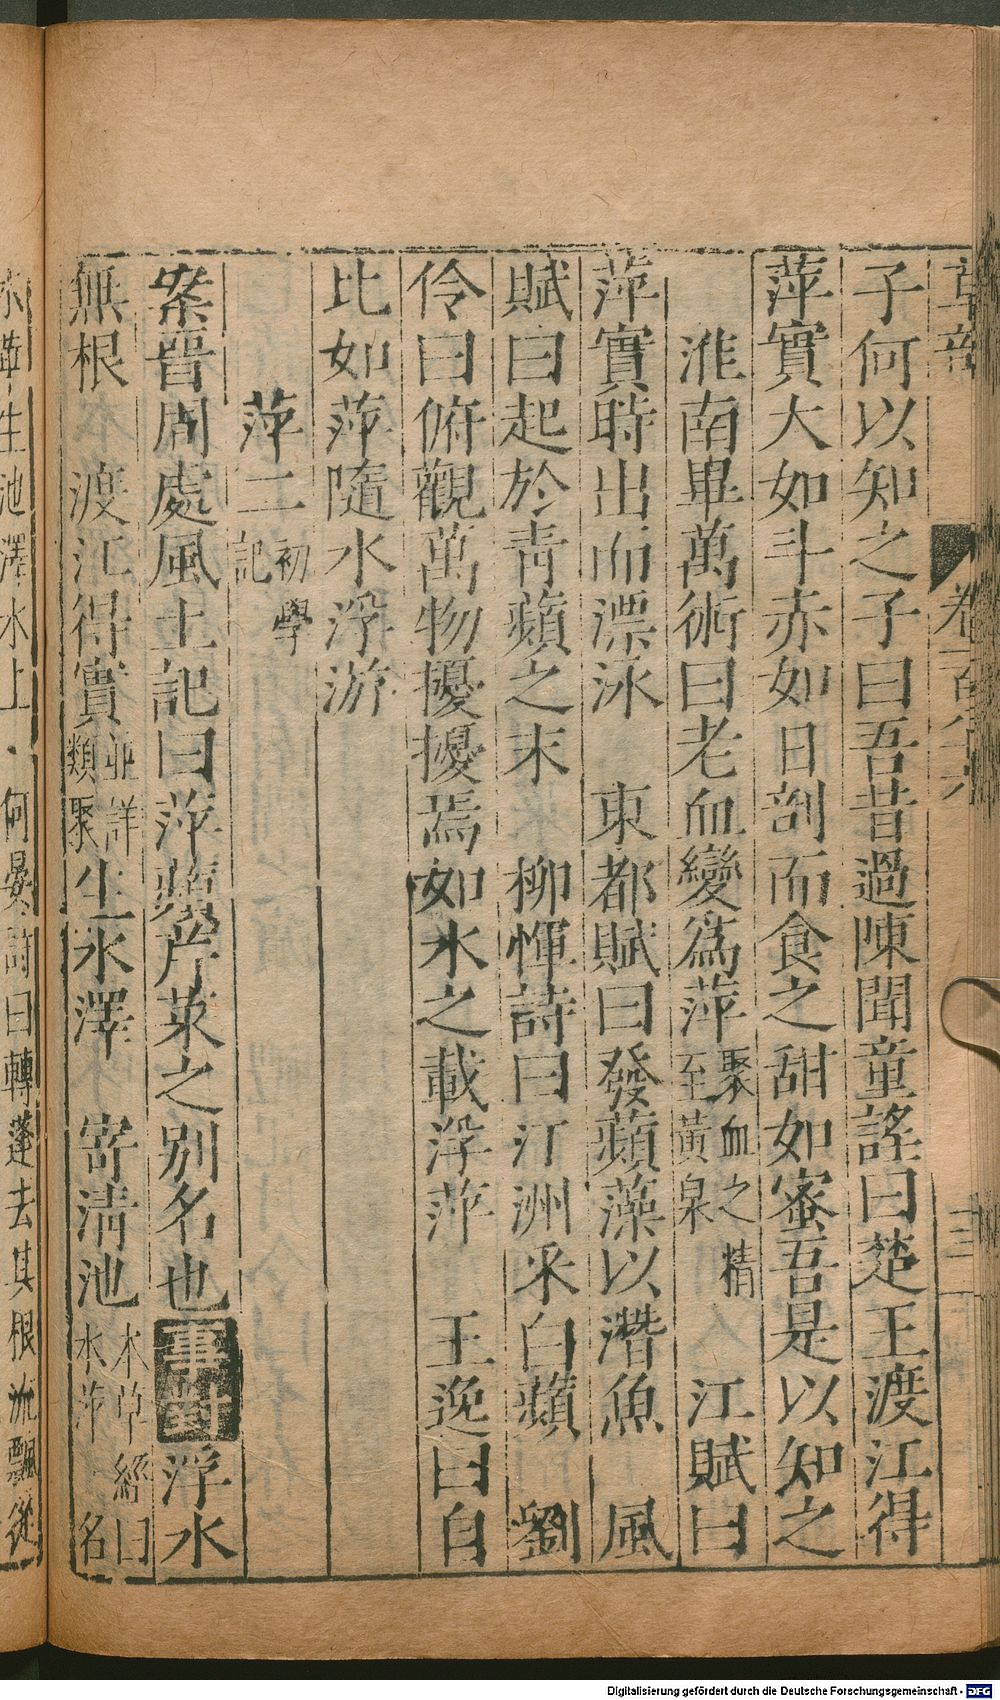 草部 卷一百八十八 三
子何以知之子曰吾昔過陳聞童謠曰楚王渡江得
萍實大如斗赤如日剖而食之甜如蜜吾是以知之
淮南畢萬術曰老血變爲萍 聚血之精至黃泉 江賦曰
萍實時出而漂泳 東都賦曰發蘋藻以潛魚 風
賦曰起於靑蘋之末 柳惲詩曰汀洲采白蘋 劉
伶曰俯觀萬物擾擾焉如水之載浮萍 王逸曰自
比如萍隨水浮游
萍二 初學記
案晉周處風土記曰萍蘋芹菜之別名也 事對 浮水
無根 渡江得實 並詳類聚 生水澤 寄淸池 本草經曰水萍名
水華生池澤水上 何晏詩曰轉蓬去其根流飄從
Digitalisierung gefördert durch die Deutsche Forschungsgemeinschaft - DFG